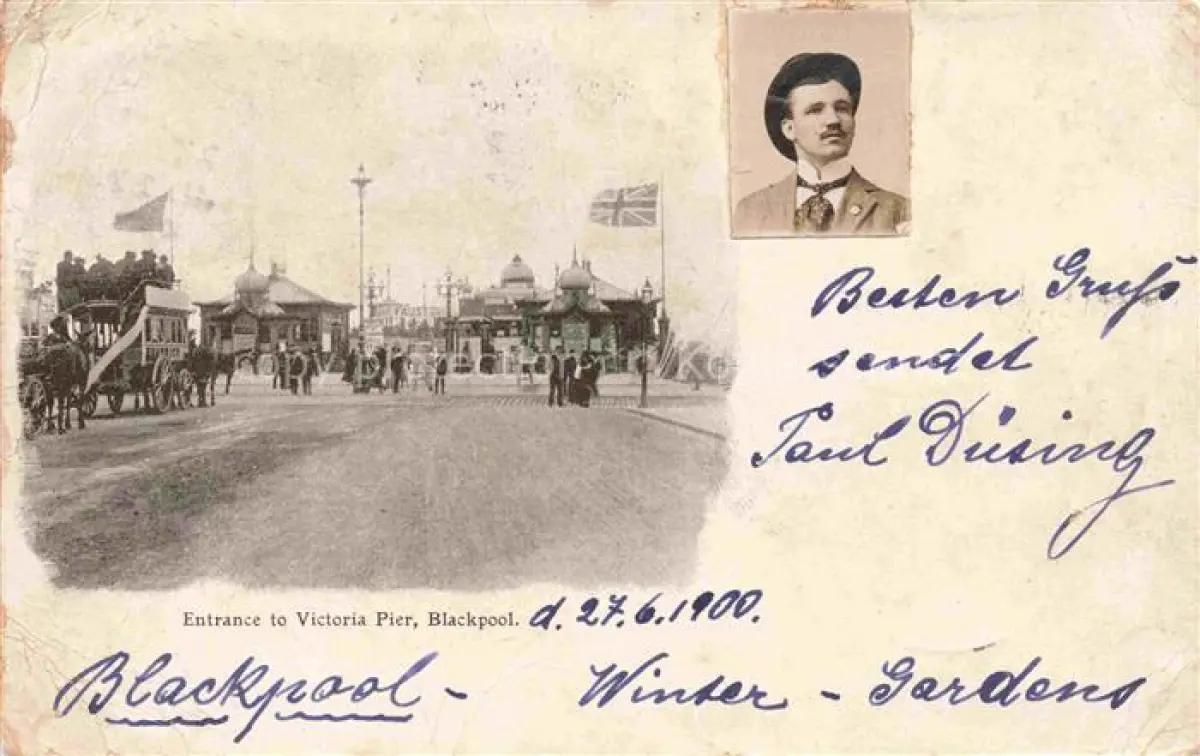 Besten Gruß
sendet
Paul Düsing
Entrance to Victoria Pier, Blackpool. d. 27.6.1900.
Blackpool - Winter - Gardens